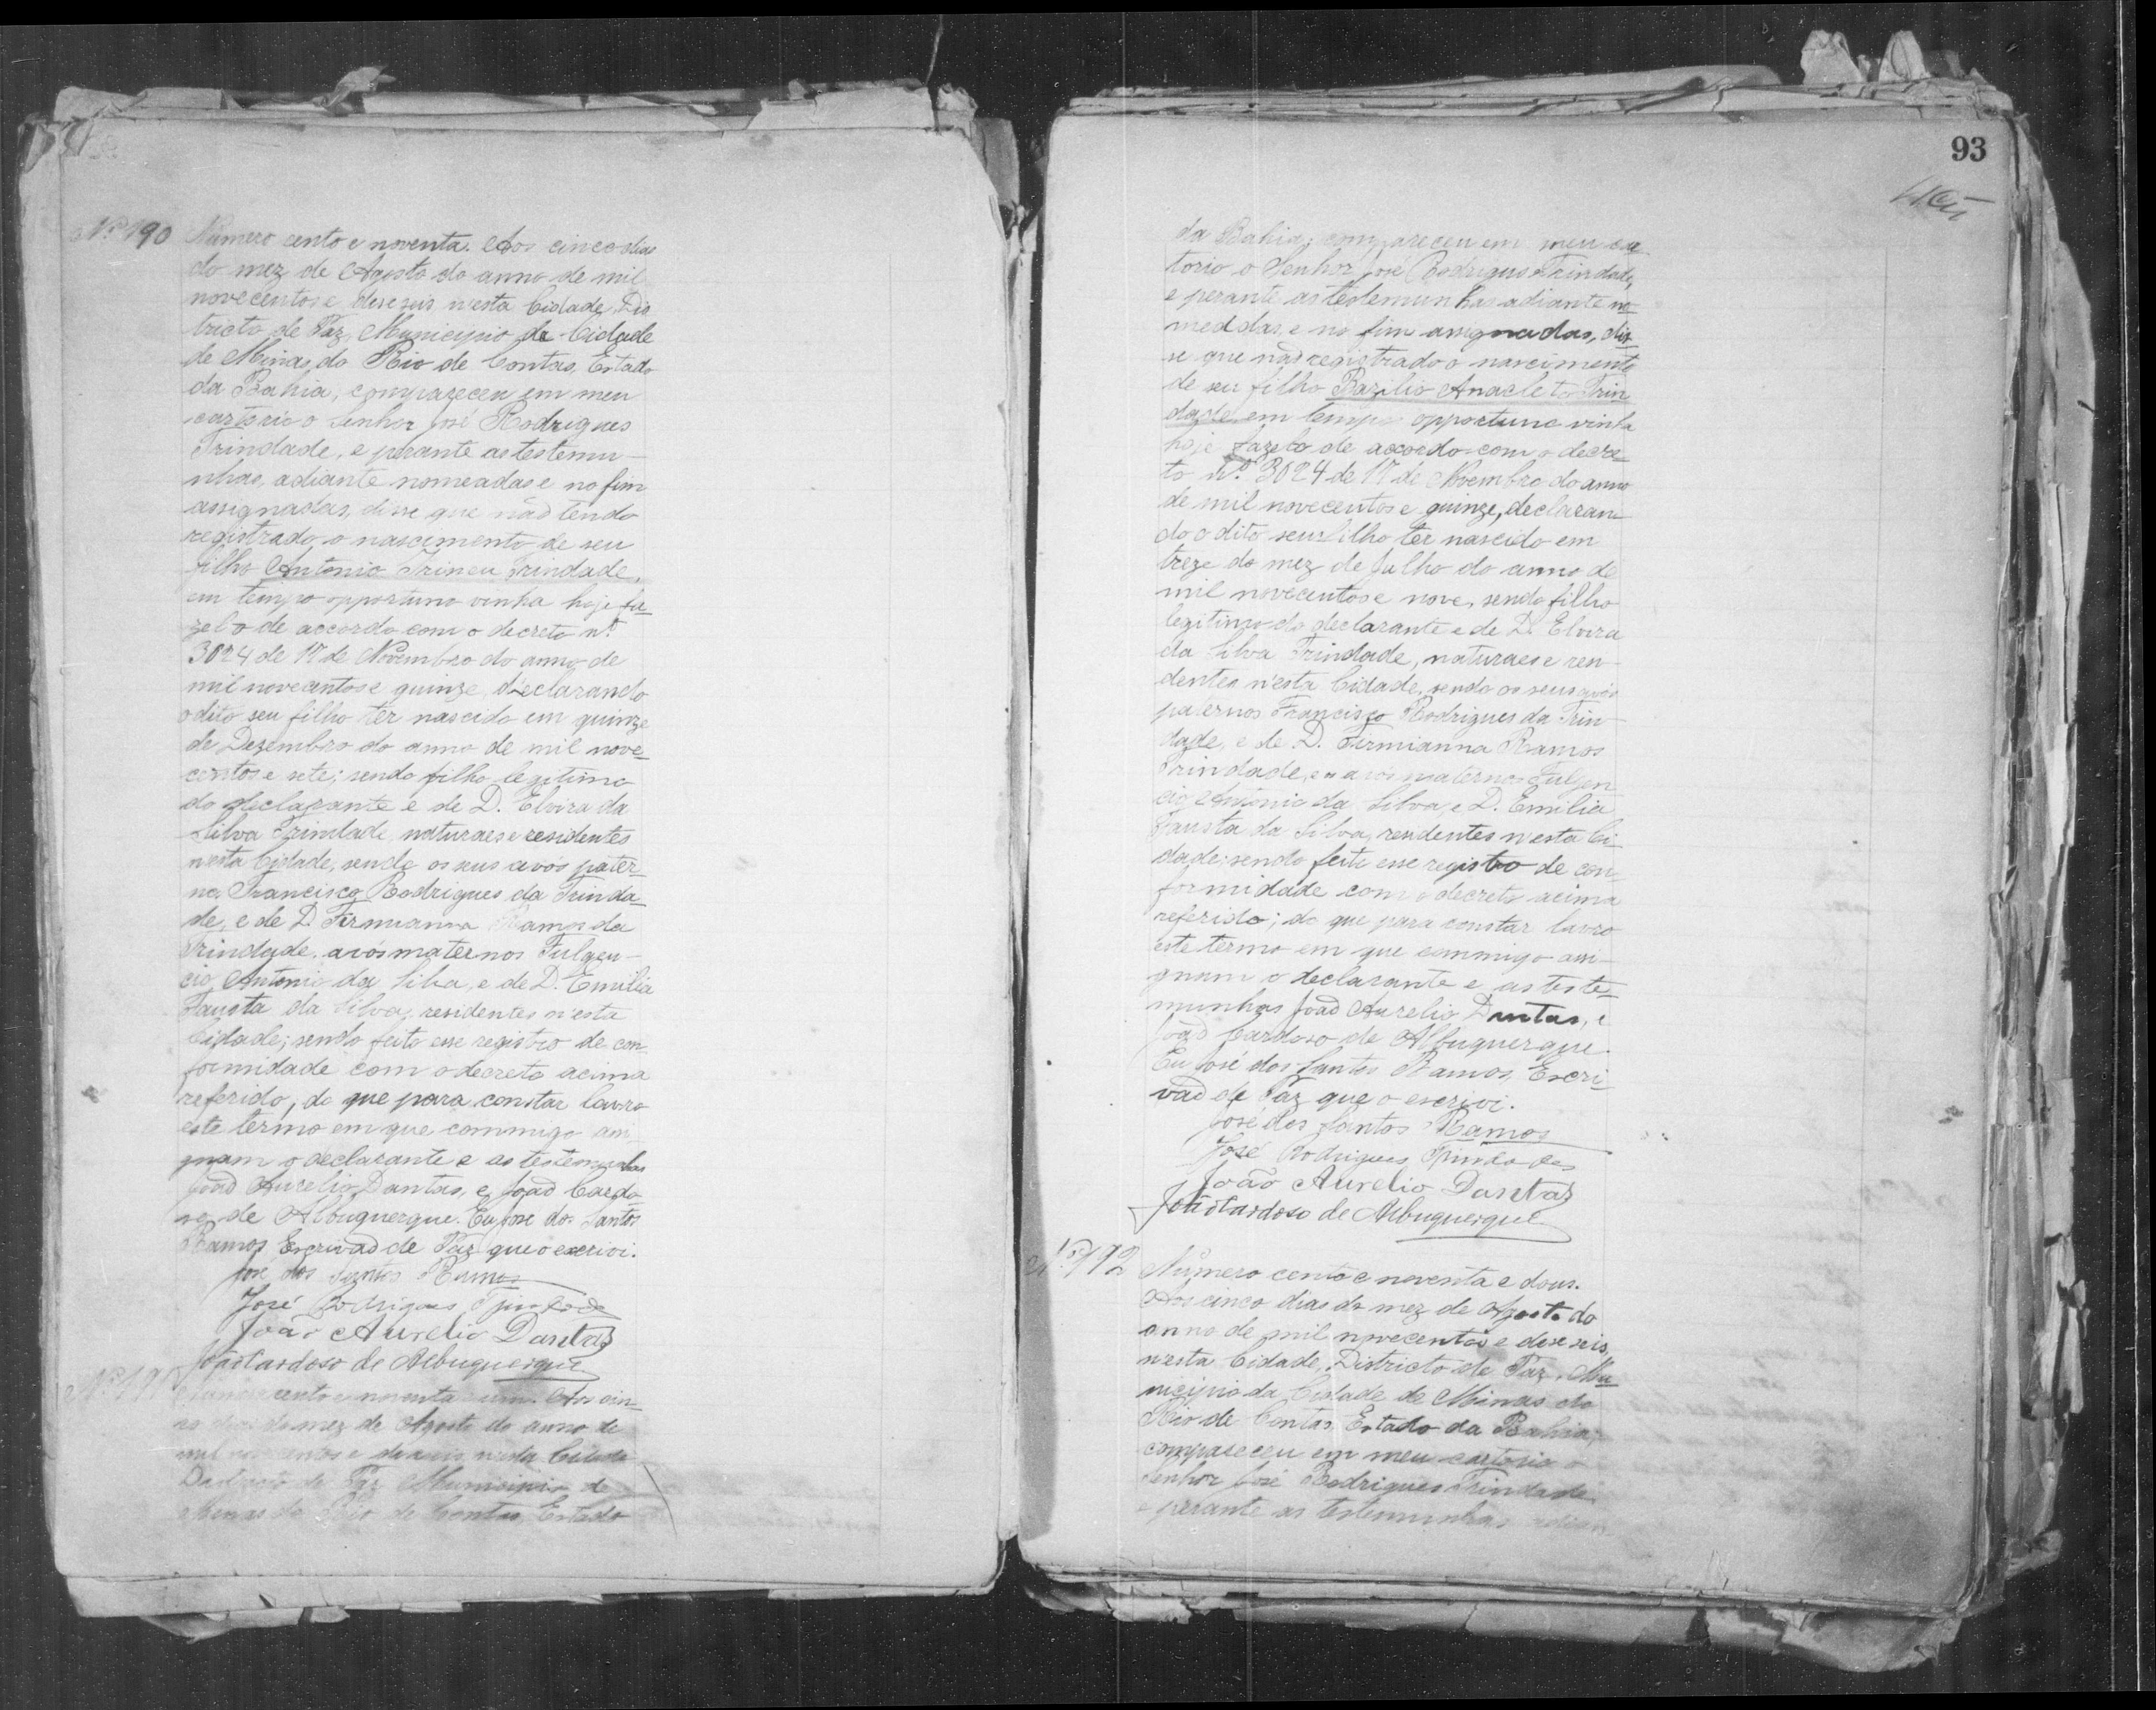 Nº 190
Número cento e noventa. Aos cinco dias
do mez de Agosto do anno de mil
novecentos e deseseis n'esta Cidade, Dis
tricto de Paz, Municipio da Cidade
de Minas do Rio de Contas, Estado
da Bahia, compareceu em meu
cartório o Senhor José Rodrigues
Trindade, e perante as testemu-
nhas, adiante nomeadas e no fim
assignadas, disse que não tendo
registrado o nascimento de seu
filho Antonio Irineu Trindade,
em tempo opportuno vinha hoje fa-
zel-o de accordo com o decreto nº
3024 de 17 de Novembro do anno de
mil novecentos e quinze, declarando
o dito seu filho ter nascido em quinze
de Dezembro do anno de mil nove-
centos e sete; sendo filho legitimo
do declarante e de D. Elvira da
Silva Trindade, naturaes e residentes
n'esta Cidade, sendo os seus avós pater-
nos Francisco Rodrigues da Trinda-
de, e de D. Firmianna Ramos da
Trindade, avós maternos Fulgen-
cio Antonio da Silva, e de D. Emilia
Fausta da Silva, residentes n'esta
Cidade; sendo feito esse registro de con-
formidade com o decreto acima
referido, do que para constar lavro
este termo em que commigo assi-
gnam o declarante e as testemunhas
João Aurelio Dantas, e João Cardo-
so de Albuquerque. Eu José dos Santos
Ramos Escrivão de Paz que o escrivi.
José dos Santos Ramos
José Rodrigues Trindade
João Aurelio Dantas
João Cardoso de Albuquerque
Número cento e noventa e um. Aos cin-
co dias do mez de Agosto do anno de
mil novecentos e deseseis nesta Cidade
Districto de Paz Municipio de
Minas do Rio de Contas, Estado
93
da Bahia; compareceu em meu car
torio o Senhor José Rodrigues Trindade,
e perante as testemunhas adiante no-
meadas e no fim assignadas, dis-
se que não registrado o nascimento
de seu filho Bazilio Anacleto Trin
dade em tempo opportuno vinha
hoje fazel-o de accordo com o decre-
to nº 3024 de 17 de Novembro do anno
de mil novecentos e quinze, declaran-
do o dito seu filho ter nascido em
treze do mez de Julho do anno de
mil novecentos e nove, sendo filho
legitimo do declarante e de D. Elvira
da Silva Trindade, naturaes e resi-
dentes n'esta Cidade, sendo os seus avós
paternos Francisco Rodrigues da Trin-
dade, e de D. Firmianna Ramos
Trindade, e os avós maternos Fulgen-
cio Antonio da Silva, e D. Emilia
Fausta da Silva, residentes n'esta Ci-
dade; sendo feito esse registro de con-
formidade com o decreto acima
referido; do que para constar lavro
este termo em que commigo assi-
gnam o declarante e as teste-
munhas João Aurelio Dantas, e
João Cardoso de Albuquerque.
Eu José dos Santos Ramos, Escri-
vão de Paz que o escrivi.
José dos Santos Ramos
José Rodrigues Trindade
João Aurelio Dantas
João Cardoso de Albuquerque
Nº 192
Número cento e noventa e dous.
Aos cinco dias do mez de Agosto do
anno de mil novecentos e deseseis,
n'esta Cidade, Districto de Paz, Mu-
nicipio da Cidade de Minas do
Rio de Contas, Estado da Bahia,
compareceu em meu cartorio o
Senhor José Rodrigues Trindade
e perante as testemunhas adian